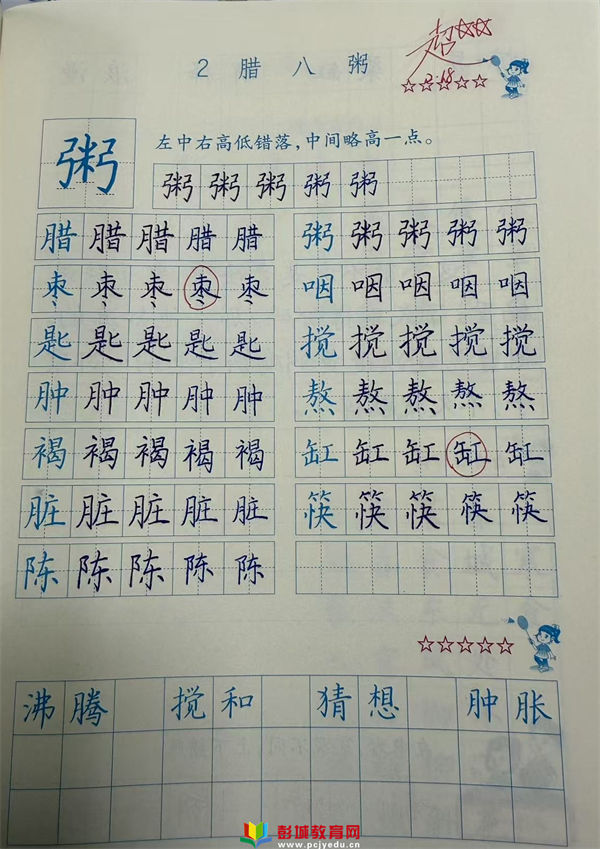 2 腊 八 粥
超
2.18
粥
左中右高低错落,中间略高一点。
粥 粥 粥 粥 粥
腊 腊 腊 腊 腊 粥 粥 粥 粥 粥
枣 枣 枣 枣 枣 咽 咽 咽 咽 咽
匙 匙 匙 匙 匙 搅 搅 搅 搅 搅
肿 肿 肿 肿 肿 熬 熬 熬 熬 熬
褐 褐 褐 褐 褐 缸 缸 缸 缸 缸
脏 脏 脏 脏 脏 筷 筷 筷 筷 筷
陈 陈 陈 陈 陈
沸 腾 搅 和 猜 想 肿 胀
彭城教育网
www.pcjyedu.cn